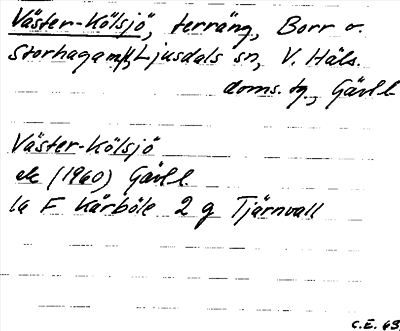 Väster-Kölsjö, terräng, Borr o.
Storhaga mfl, Ljusdals sn, V. Häls.
doms. tg., Gävl. l
Väster-Kölsjö
ek (1960) Gävl. l
la F Kårböle 2 g Tjärnvall
C.E. 63.